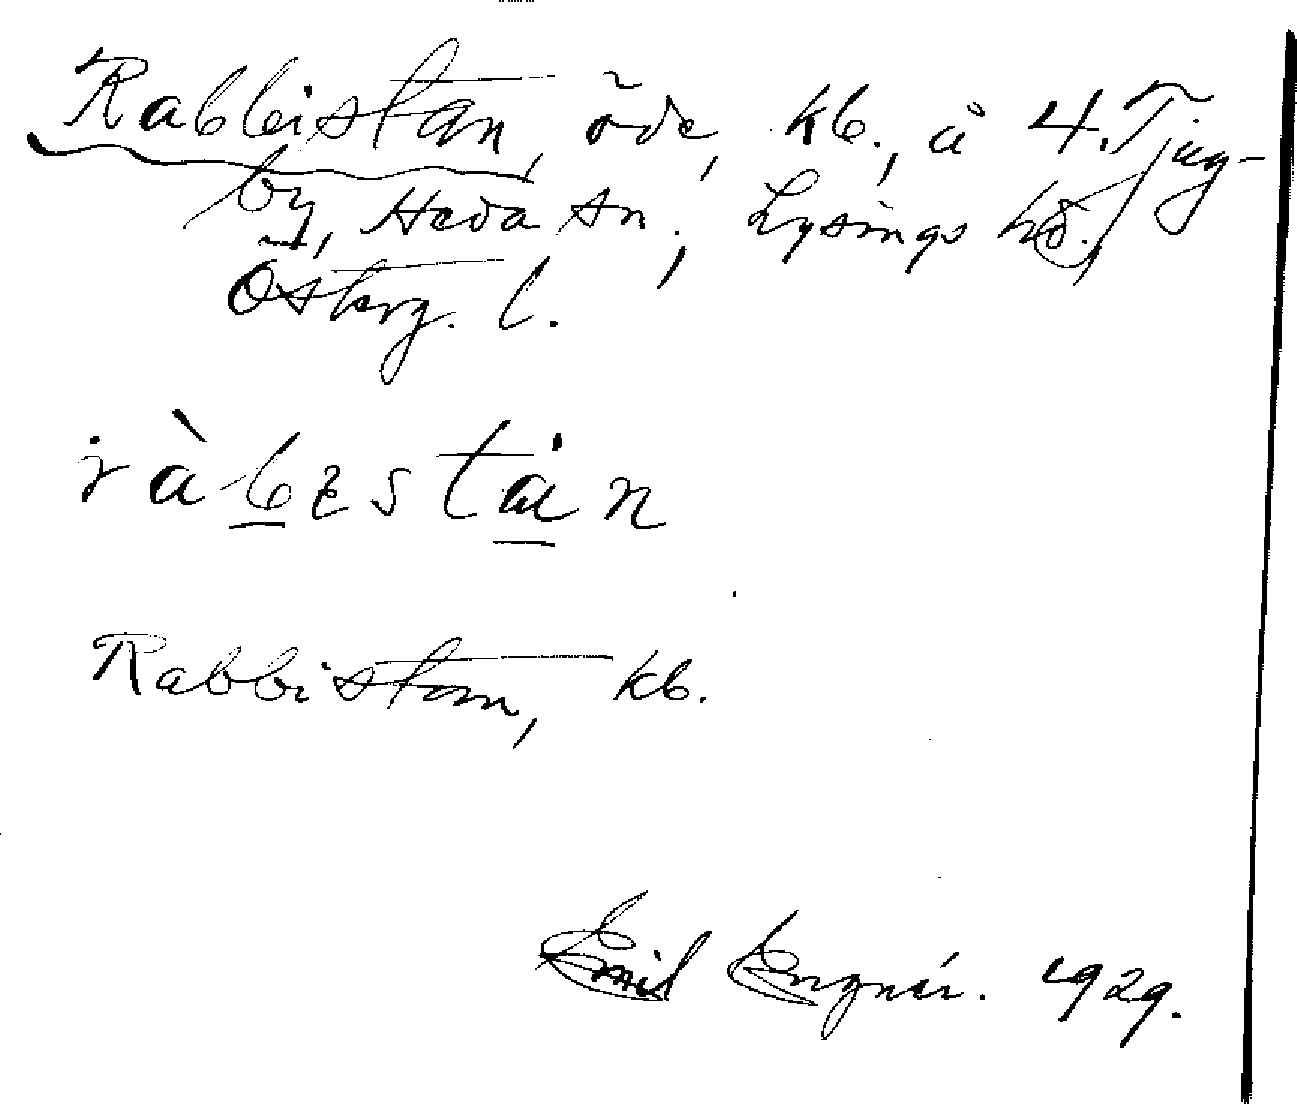 Rabbistan, öde, kb., å 4. Tjug-
by, Heda sn., Lysings hd.,
Österg. l.
ràbestan
Rabbistan, kb.
Emil Engnér. 1929.